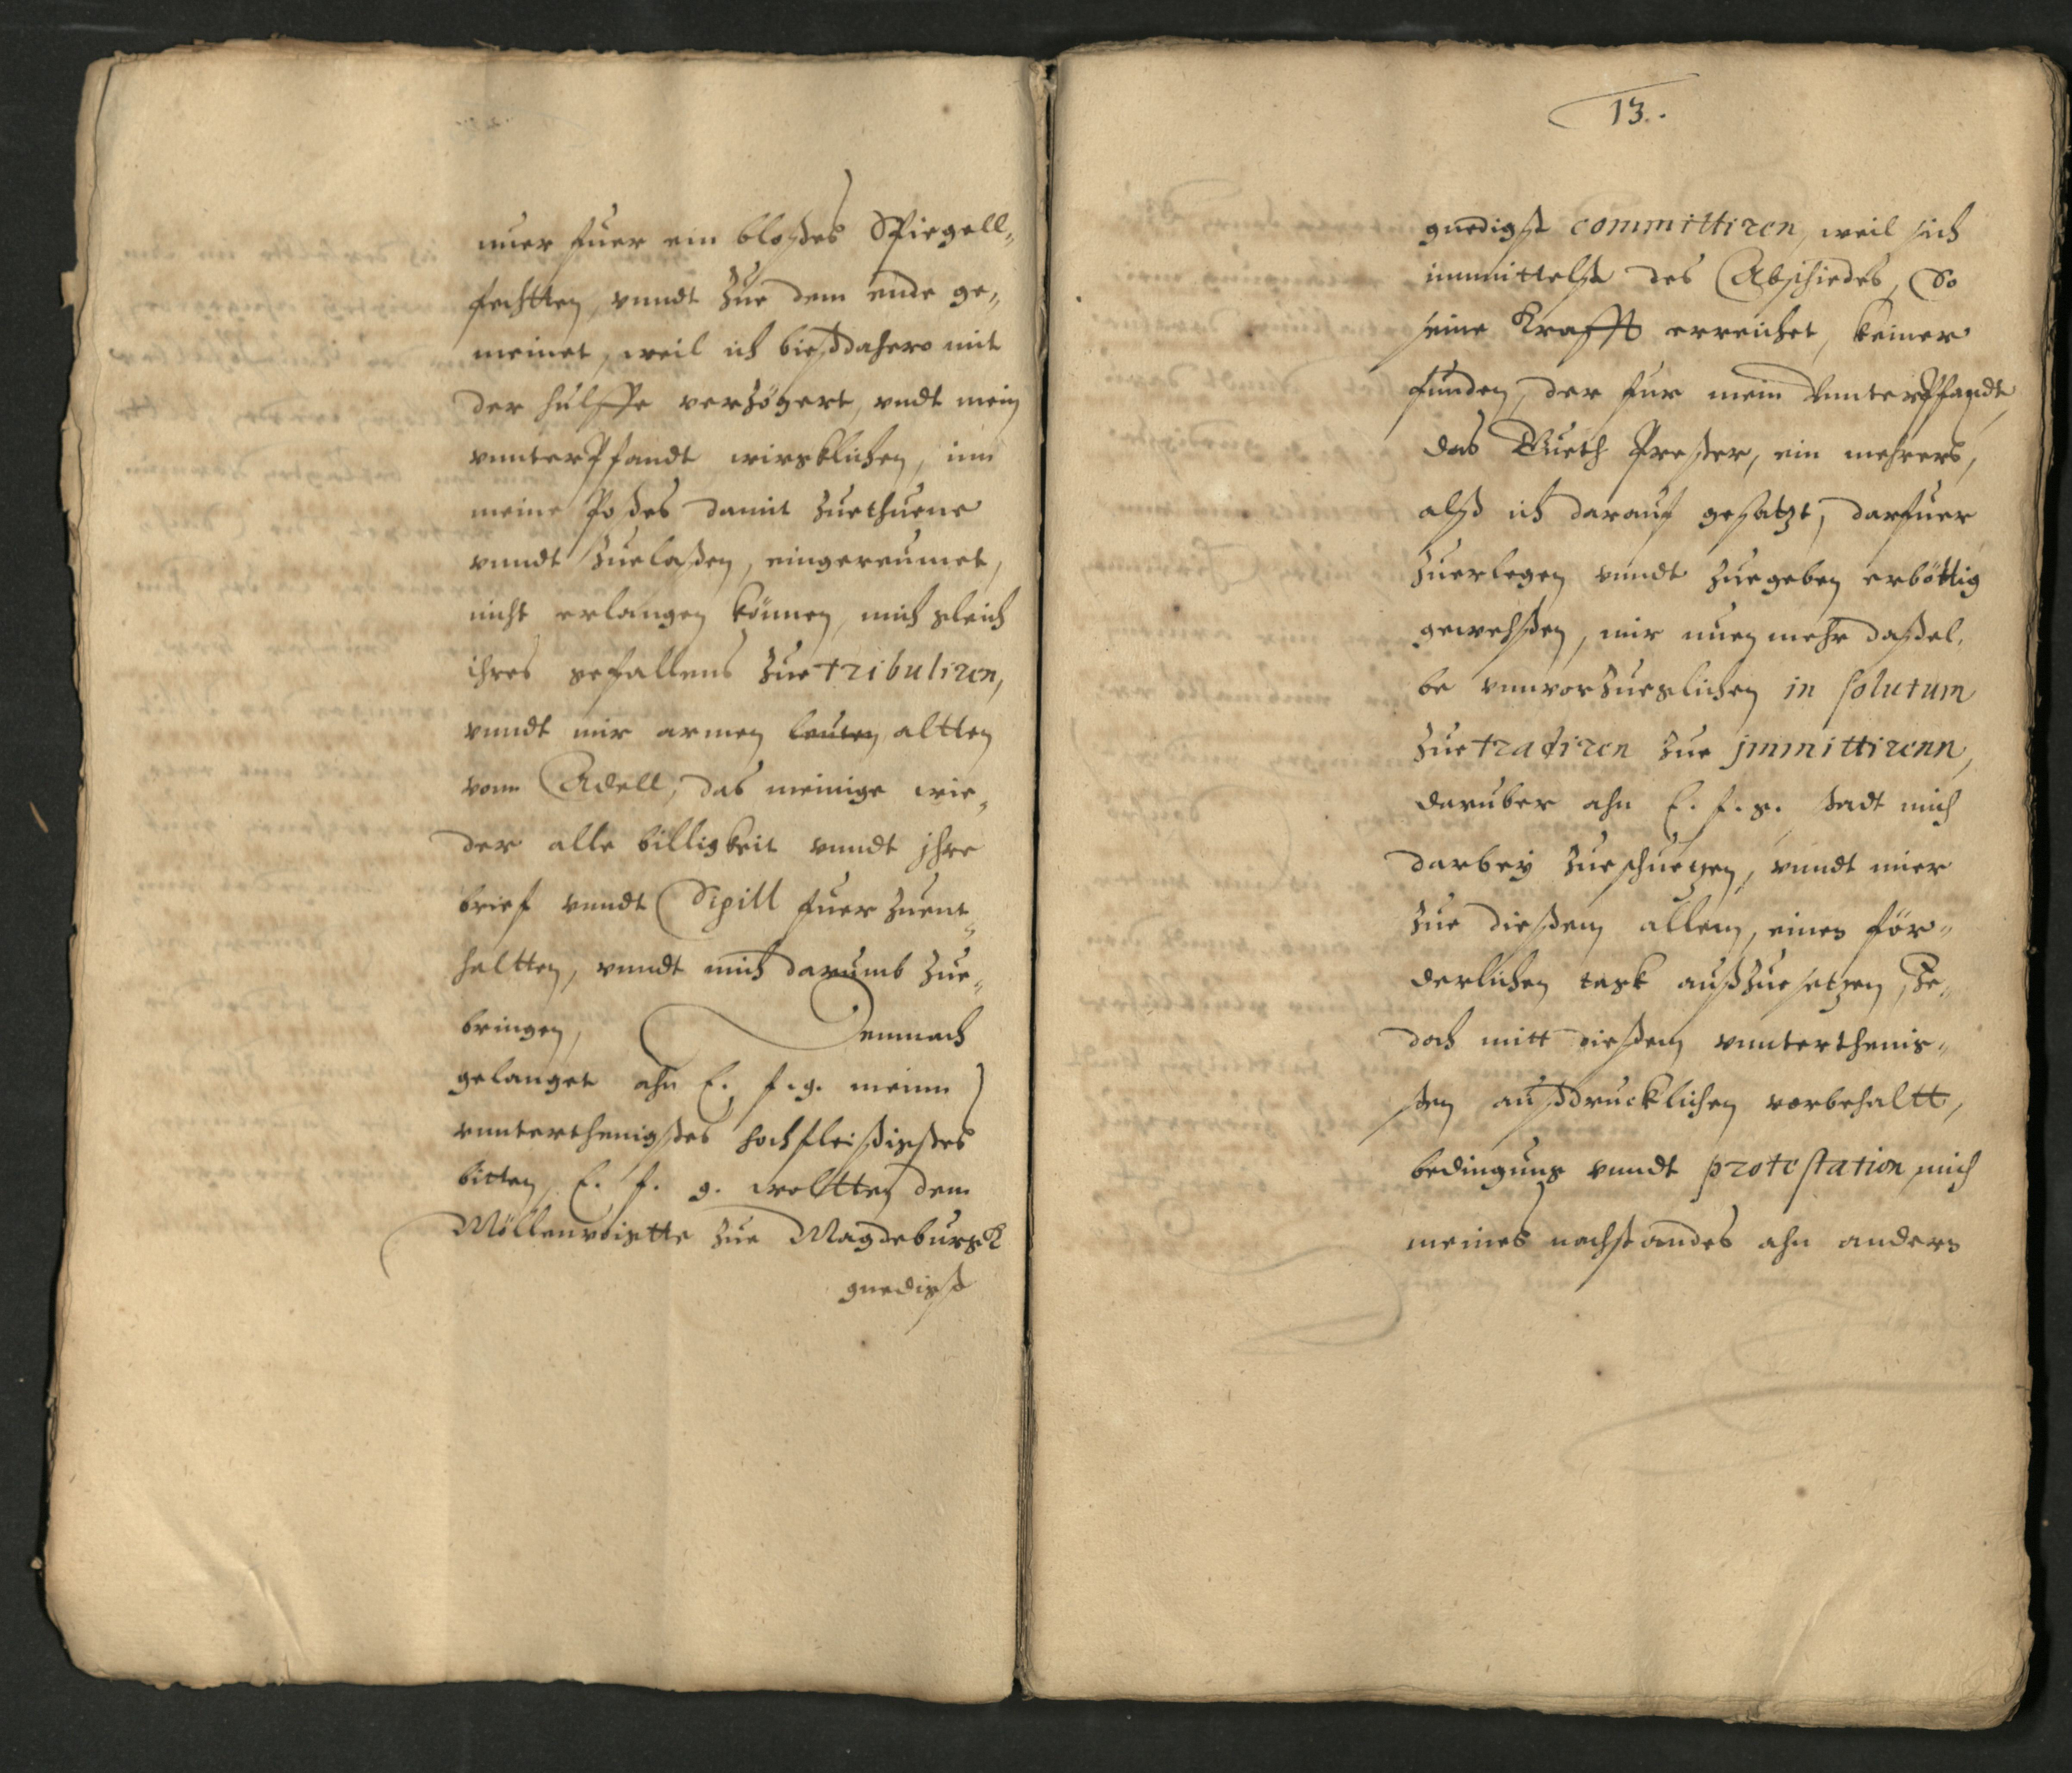 nuer fuer ein bloßes Spiegell„
fechtten, vnndt zue dem ende ge„
meinet, weil ich bießdahero mit
der hulffe verzögert, vndt mein
vnnterPfandt wircklichen, inn
meine Poßes damit zuethuene
vnndt zuelaßen, eingereumet,
nicht erlangen können, mich gleich
ihres gefallens zue tribuliren,
vnndt mir armen leuten altten
vonn Adell, das meinige wie„
der alle billigkeit vnndt jhre
brief vnndt Siegill fuer zuent„
haltten, vnndt mich darumb zue„
bringen, Demnach
gelanget ahn E. f. g. meinn
vnnterthenigstes hochfleißigstes
bitten, E. f. g. woltten dem
Möllenvoigtte zue Magdeburgk
gnedigst
13.
gnedigst committiren, weil sich
inmittelst des Abschiedes, So
seine Krafft erreichet, keiner
funden, der fur mein VnnterPfandt
das Gueth Preßer, ein mehrers,
alß ich darauf gesatzt, darfuer
zuerlegen vnndt zuegeben erböttig
gewehßen, mir nuen mehr daßel„
be vnnvorzueglichen in solutum
zue tradiren zue jmmittirenn,
daruber ahn E. f. g. stadt mich
darbey zueschuetzen, vnndt mier
zue dießem allem, einen för„
derlichen tagk außzuesetzen, Je„
doch mitt dießem vnnterthenig„
sten außdrucklichen vorbehaltt,
bedingung vnndt protestation, mich
meines nachstandes ahn andern